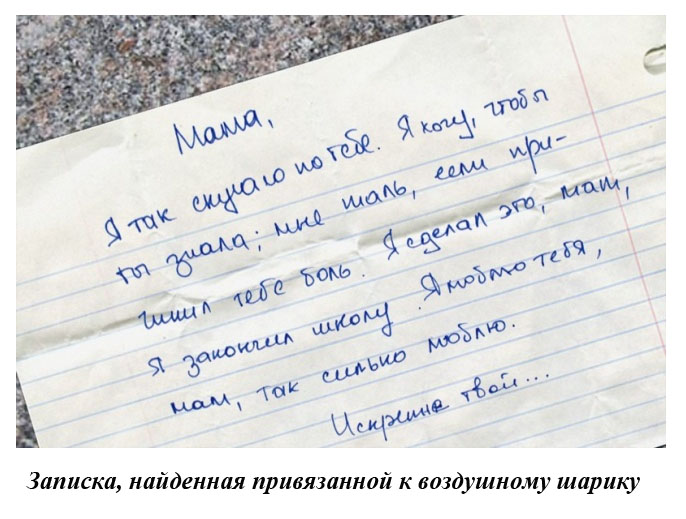 Мама,
Я так скучаю по тебе. Я хочу, чтобы
ты знала; мне жаль, если при-
чинил тебе боль. Я сделал это, мам,
я закончил школу. Я люблю тебя,
мам, так сильно люблю.
Искренне твой...
Записка, найденная привязанной к воздушному шарику